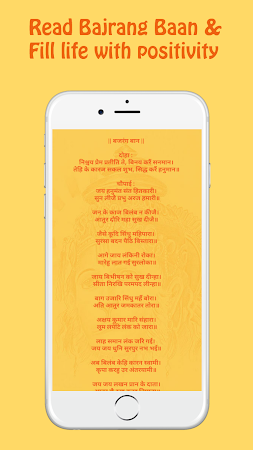 Read Bajrang Baan &
Fill life with positivity
|| बजरंग बाण ||
दोहा :
निश्चय प्रेम प्रतीति ते, बिनय करैं सनमान।
तेहि के कारज सकल शुभ, सिद्ध करैं हनुमान॥
चौपाई :
जय हनुमंत संत हितकारी।
सुन लीजै प्रभु अरज हमारी॥
जन के काज बिलंब न कीजै।
आतुर दौरि महा सुख दीजै॥
जैसे कूदि सिंधु महिपारा।
सुरसा बदन पैठि बिस्तारा॥
आगे जाय लंकिनी रोका।
मारेहु लात गई सुरलोका॥
जाय बिभीषन को सुख दीन्हा।
सीता निरखि परमपद लीन्हा॥
बाग उजारि सिंधु महँ बोरा।
अति आतुर जमकातर तोरा॥
अक्षय कुमार मारि संहारा।
लूम लपेटि लंक को जारा॥
लाह समान लंक जरि गई।
जय जय धुनि सुरपुर नभ भई॥
अब बिलंब केहि कारन स्वामी।
कृपा करहु उर अंतरयामी॥
जय जय लखन प्रान के दाता।